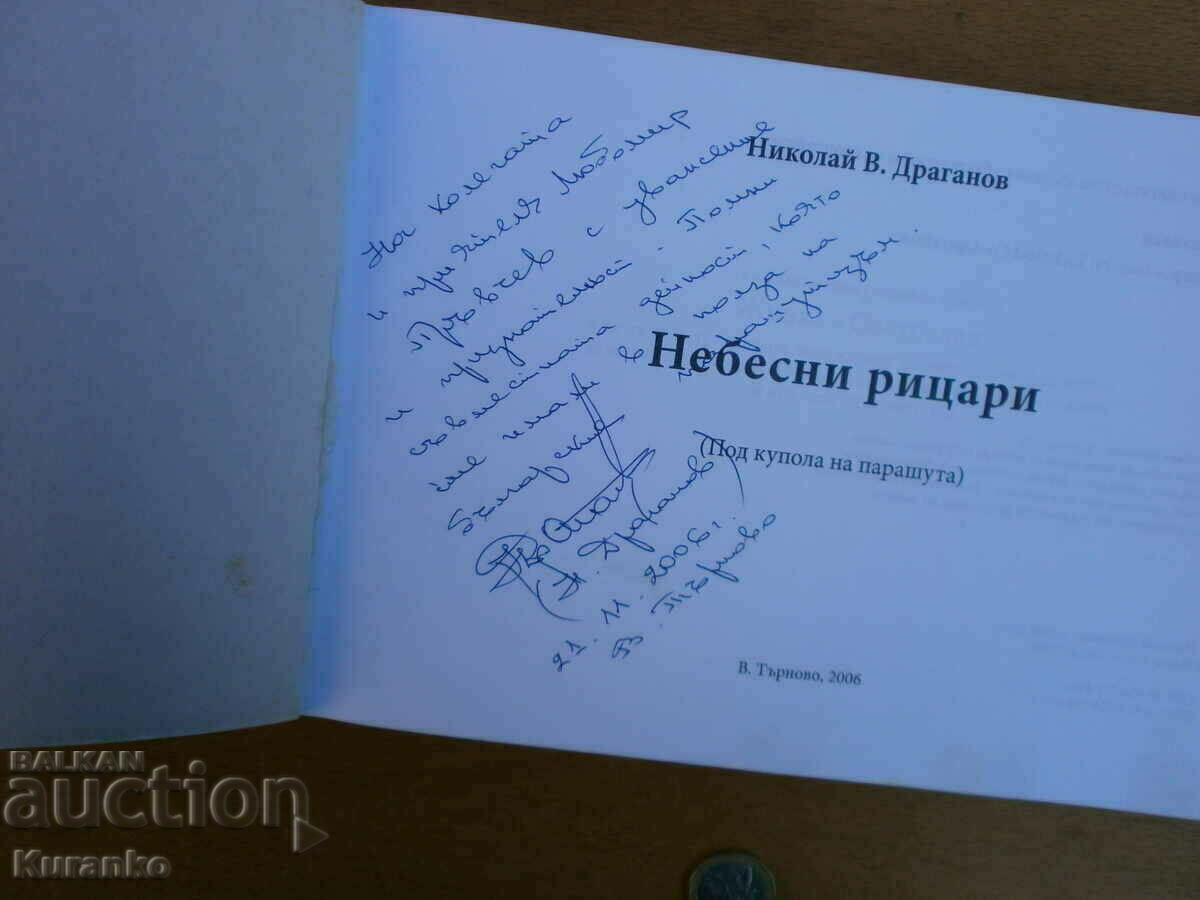 На колегата
и приятел Любомир
Първчев с уважение
и признателност. Помни
съвместната дейност, която
сме имали в полза на
българския парашутизъм.
(Н. Драганов)
21. 11. 2006г.
В. Търново
Николай В. Драганов
Небесни рицари
(Под купола на парашута)
В. Търново, 2006
BALKAN
auction
Kuranko